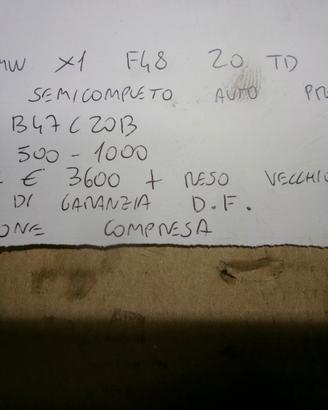 MW X1 F48 20 TD
SEMICOMPLETO AUTO PR
B47C20B
500 - 1000
€ 3600 + RESO VECCHIO
DI GARANZIA D.F.
ONE COMPRESA